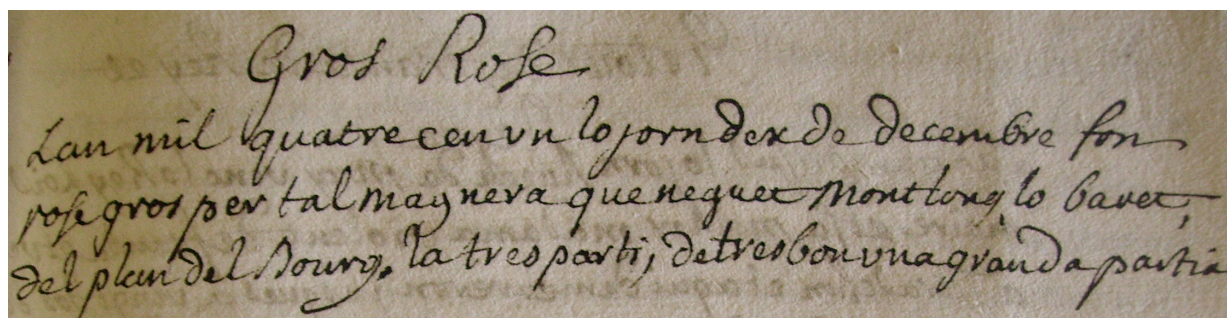 Gros Rose
Lan mil quatrecen vn lo jorn dex de decembre fon
rose gros per tal maynera que neguet Montlong lo bauet,
del plan del Bourg. la tres parti, de tresbon vna granda partia